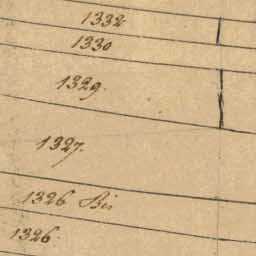 1332
1330
1329.
1327.
1326 Bis
1326.